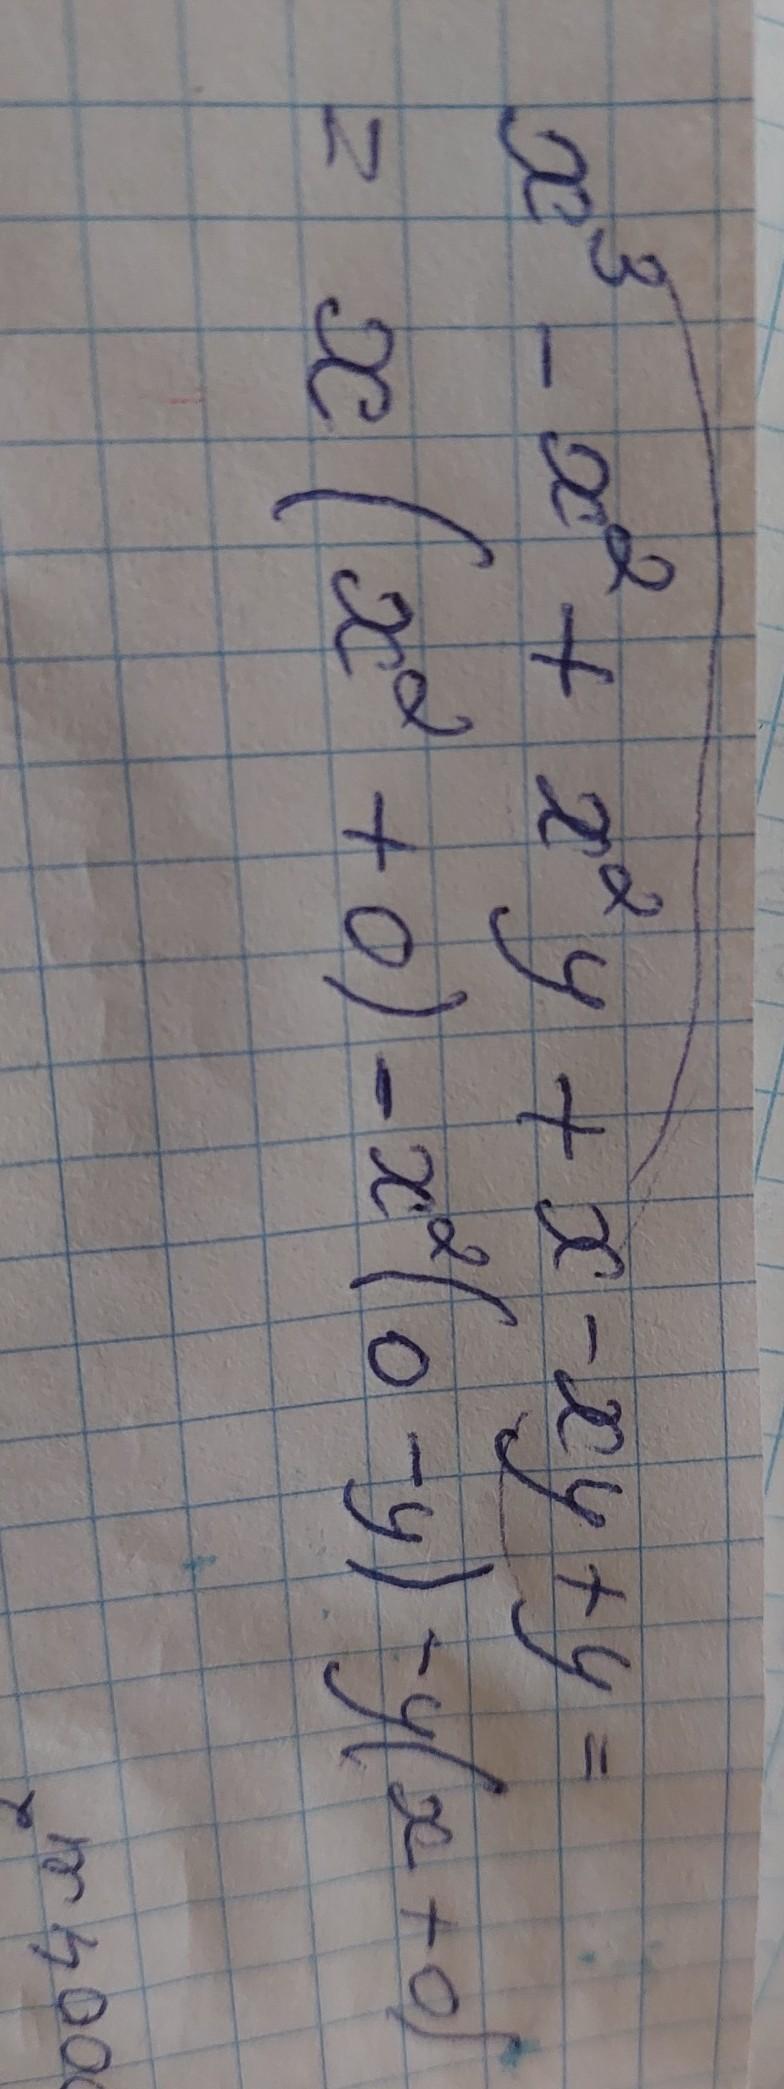 x³ - x² + x²y + x - xy + y =
= x (x² + 0) - x² (0 - y) - y (x + 0)